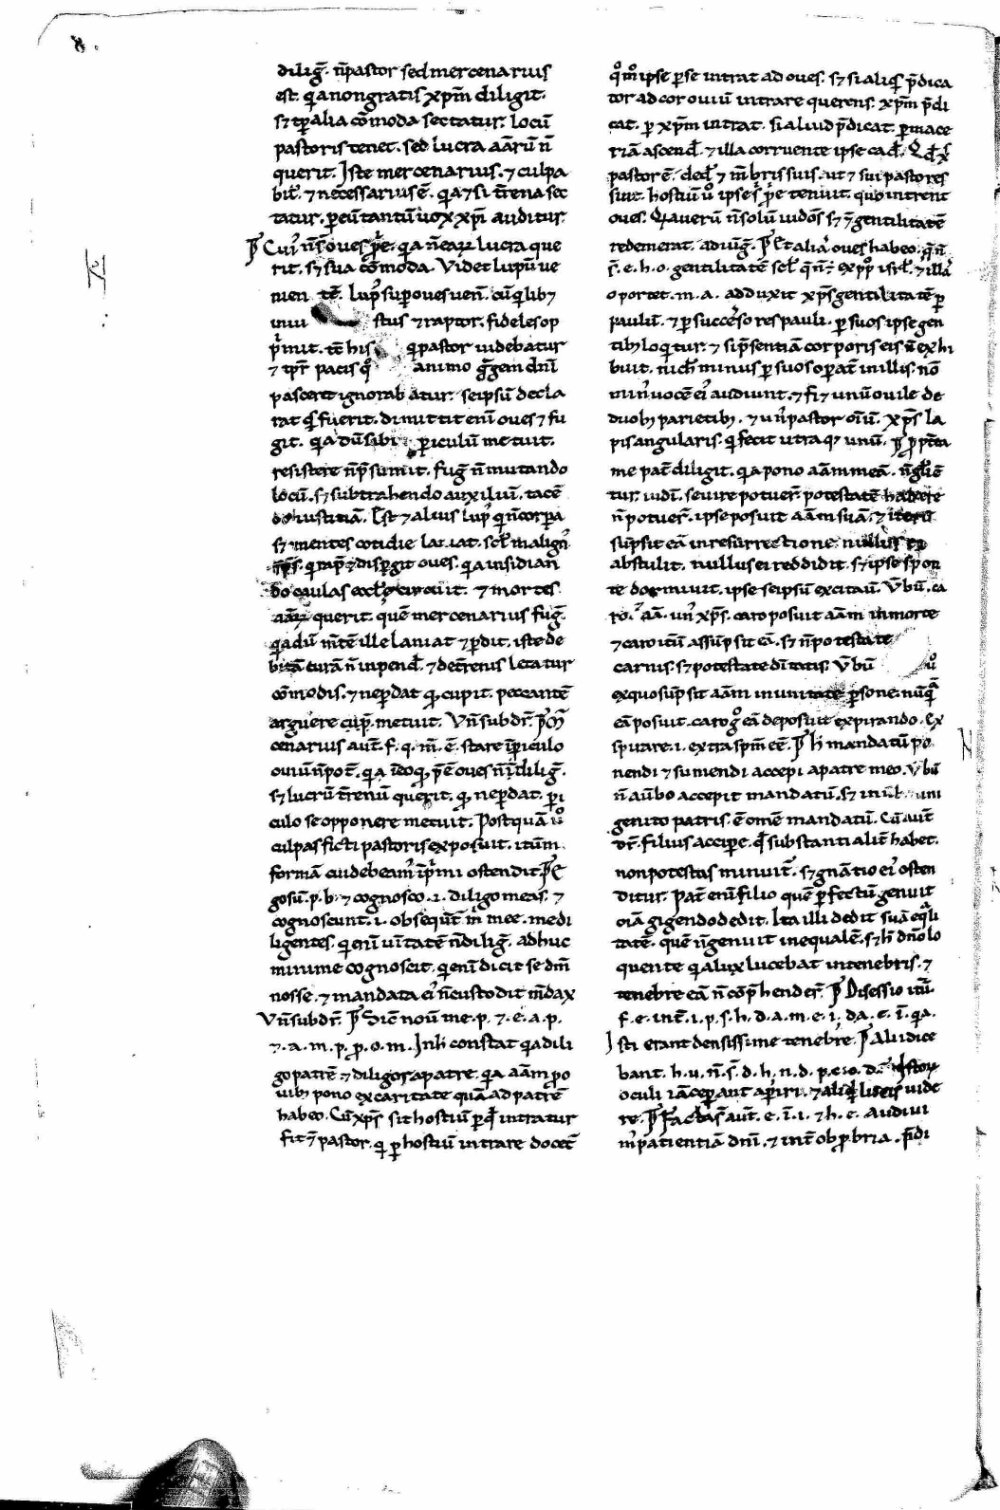 8.
diliḡ. n̄ pastor sed mercenarius
est. q̄a non gratis xp̄m diligit.
s; tp̄alia cōmoda sectatur. locū
pastoris tenet. sed lucra aāꝝ n̄
querit. Iste mercenarius. ⁊ culpa
bił. ⁊ necessarius ē. q̄a ⁊ si t̄rena sec
tatur. p eū tantū uox xp̄i auditur
Cui᷒ n̄ s̄ oues ꝓp̄e. q̄a n̄ eaꝝ lucra que
rit. s; sua cōmoda. Videt lupū ue
nien tē. lup᷒ sup oues uen̄. cū q̄liby
iniu stus ⁊ raptor. fideles op
p̄mit. tē his q̄ pastor uidebatur
⁊ tp̄r pacis animo gḡem dn̄i
pascere ignorab atur. se ipsū decla
rat q̄s fuerit. dimittit eni oues ⁊ fu
git. q̄a dū sibi periculū metuit.
resistere n̄ p̄sumit. fuḡ n̄ mutando
locū. s; subtrahendo auxiliū. tacē
do iustitiā. Est ⁊ alius lup᷒ q̄ n̄ corpa
s; mentes cotidie laniat. scł. malign᷒
sp̄s. q̄ rap̄ ⁊ dispergit oues. q̄a insidian
do caulas eccłe circuit. ⁊ mortes
aāꝝ querit. quē mercenarius fuḡ.
q̄a dū m̄te ille laniat ⁊ p̄dit. iste de
bitā curā n̄ inpend̄. ⁊ dec̄renis letatur
cōmodis. ⁊ ne perdat q̄ cupit. peccantē
arguere cup̄. metuit. Vn̄ subdr̄.
cenarius aut̄. f. q. m̄. ē. stare ī piculo
ouiū n̄ pot̄. q̄a īeo q̄ p̄e oues n̄ diliḡ.
s; lucrū t̄renū querit. q̄ ne perdat. pi
culo se opponere metuit. Postquā ū
culpas ficti pastoris exposuit. itūm
formā cui debeam᷒ īp̄mi ostendit Eḡ
go sū. p. b. ⁊ cognosco. i. diligo meas. ⁊
cognoscunt. i. obsequūt m̄ mee. me di
ligentes. q̄ eni uītatē n̄ diliḡ. adhuc
minime cognoscit. q̄ eni dicit se dm̄
nosse. ⁊ mandata ei᷒ n̄ custodit mdax
Vn̄ subdr̄. Sic̄ nouit me. p. ⁊. e. a. p.
⁊. a. m. p. p. o. m. In h̄ constat q̄a dili
go patrē. ⁊ diligor a patre. q̄a aām po
uib᷒ pono ex caritate quā ad patrē
habeo. Cū xp̄s sit hostiū p q̄d intratur
fit ⁊ pastor. q̄ p hostiū intrare docet
q̄m ipse p se intrat ad oues. s; si aliq̄s p̄dica
tor ad cor ouiū intrare querens. xp̄m p̄di
cat. p xp̄m intrat. si aliud p̄dicat. p mace
riā ascend̄. ⁊ illa corruente ipse cad̄.
pastor ē. ded̄ ⁊ m̄bris suis. ut ⁊ sui pastores
sint. hostiū u᷒ ipse s᷒ p̄e tenuit. quo intrent
oues. Q̄a uerū n̄ solū iudōs s; ⁊ gentilitatē
redemerat. adiuḡ. Et alias oues habeo. q̄ n̄
s̄. e. h. o. gentilitatē scł. q̄ n̄ ē exppo isrł. ⁊ illas
oportet. m. a. adduxit xp̄s gentilitatē p
paulū. ⁊ p successores pauli. p suos ipse gen
tiby loq̄tur. ⁊ si p̄sentiā corporis eis n̄ exhi
buit. nich̄ minus p suos opat in illis. nō
min᷒ uocē ei᷒ audiunt. ⁊ fit unū ouile de
duob᷒ parietib᷒. ⁊ un᷒ pastor oīū. Xp̄s la
pis angularis. q̄ fecit utraq᷒ unū. ꝓpt̄ea
me pat̄ diligit. q̄a pono aām meā. n̄ głie
tur. iudi. seuire potuer̄. potestatē habere
n̄ potuer̄. ipse posuit aām suā. ⁊ iterū
sūpsit eā in resurrectione. nullus ei
abstulit. nullus ei reddidit. s; ipse spon
te dormiuit. ipse se ipsū excitauī. Vbū. ca
ro. aā. un᷒ xp̄s. caro posuit aām in morte
⁊ caro itū assūpsit eā. s; n̄ potestate
carnis. s; potestate diuītatis. Vbū
ex quo sūpsit aām in unitate psone. nūq̄
eā posuit. caro g᷒ eā deposuit expirando. Ex
spirare. i. extra spm̄ eē. h̄ mandatū po
nendi ⁊ sumendi accepi a patre meo. Vbū
n̄ a ubo accepit mandatū. s; in ub uni
genito patris. ē omē mandatū. Cū aut̄
dr̄. filius accipe. q̄d substantialit̄ habet.
non potestas minuit̄. s; gn̄atio ei᷒ osten
ditur. Pat̄ eni filio quē perfectū genuit
oīa gigendo dedit. Ita illi dedit suā eq̄li
tatē. quē n̄ genuit inequalē. s; h̄ dn̄o lo
quente q̄a lux lucebat in tenebris. ⁊
tenebre eā n̄ cōp̄hender̄. Disessio itūm
f. e. int̄. i. p. s. h. d. a. m. e. i. da. e. ī. q̄a.
Isti erant densissime tenebre. Alii dice
bant. h. u. n̄. s̄. d. h. n. d. p. c. o. d.
oculi iā ceperant aperiri. ⁊ aliq̄d lucis uide
re. Facta s̄ aut̄. e. ī. i. ⁊ h. e. audiui
m᷒ patientiā dn̄i. ⁊ int̄ obp̄bria. p̄di